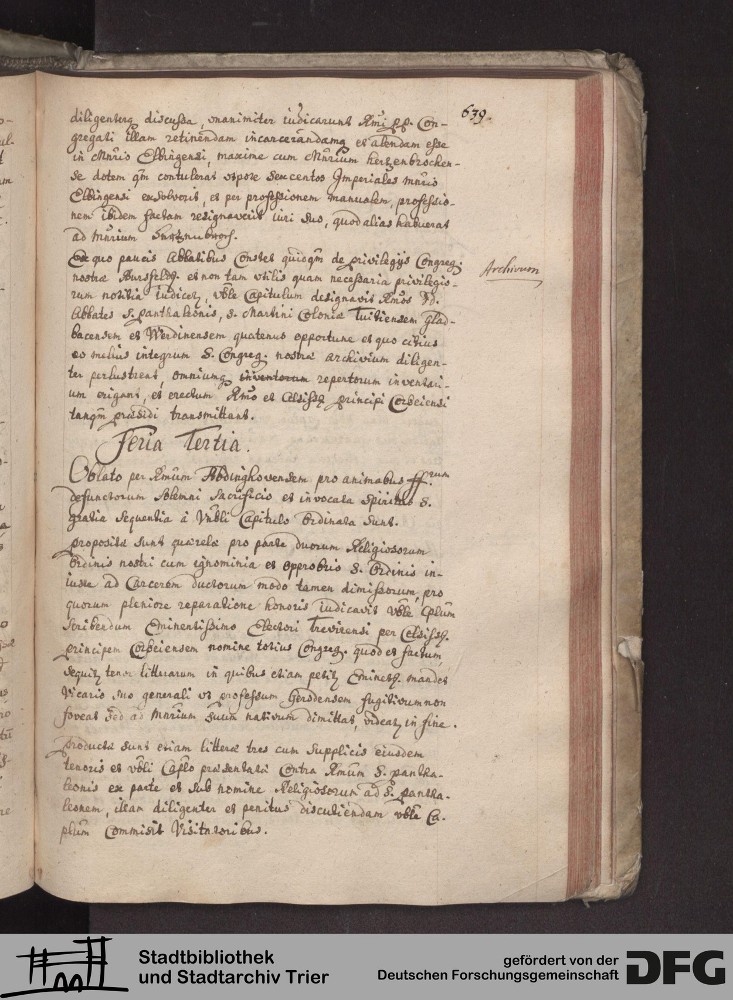 639.
diligenterq discussa, unanimiter iudicarunt Rm̃i PP. Con-
gregati illam retinendam incarcerandamq et alendam esse
in Mnrio Elbingensi, maxime cum Mnrium hertzenbrocken-
se dotem qm̃ contulerat utpote sexcentos Imperiales mnrio
Elbingensi exsolverit, et per professionem manualem, professio-
nem ibidem factam resignaverit iuri suo, quod alias habuerat
ad Mnrium
Ex quo paucis Abbatibus Constet quicqm̃ de privilegijs Congreg:
nostræ Bursfeld: et non tam utilis quam necessaria privilegio-
rum notitia iudicet, vble Capitulum designavit Rm̃os DD.
Abbates S. Panthaleonis, S. Martini Coloniæ Tuitiensem Glad-
bacensem et Werdinensem quatenus opportune et quo citius
eo melius integrum S. Congreg: nostræ archivium diligen-
ter perlustrent, omniumq inventorum repertorum inventari-
um erigant, et erectum Rm̃o et Celsissõ Principi Corbeiensi
tanqm̃ præsidi transmittant.
Archivum
Feria Tertia.
Oblato per Rm̃um Abdinghovensem pro animabus ff.rum
defunctorum solemni sacrificio et invocata Spiritus S.
gratia sequentia à Vnbli Capitulo Ordinata sunt.
Propositæ sunt quærelæ pro parte duorum Religiosorum
Ordinis nostri cum ignominia et opprobrio S. Ordinis in-
iuste ad Carcerem ductorum modo tamen dimissorum, pro
quorum pleniore reparatione honoris iudicavit vble Cplum
scribendum Eminentissimo Electori Trevirensi per Celsiss:
principem Corbeiensem nomine totius Congreg: quod et factum,
sequit tenor litterarum in quibus etiam petit Eminets mandet
Vicario suo generali ut professum Gerodensem fugitivum non
foveat sed ad Mnrium suum nativum dimittat, videat in fine.
Productæ sunt etiam litteræ tres cum supplicis eiusdem
tenoris et vbli Caplo præsentatæ Contra Rm̃um S. Pantha-
leonis ex parte et sub nomine Religiosorum ad S. Pantha-
leonem, illam diligenter et penitus discutiendam vble Ca-
plum Commisit Visitatoribus.
Stadtbibliothek
und Stadtarchiv Trier
gefördert von der
Deutschen Forschungsgemeinschaft
DFG